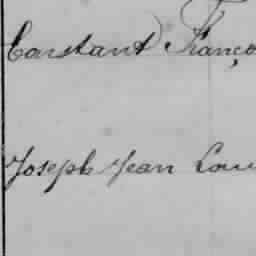 Constant Franço
Joseph Jean Lou